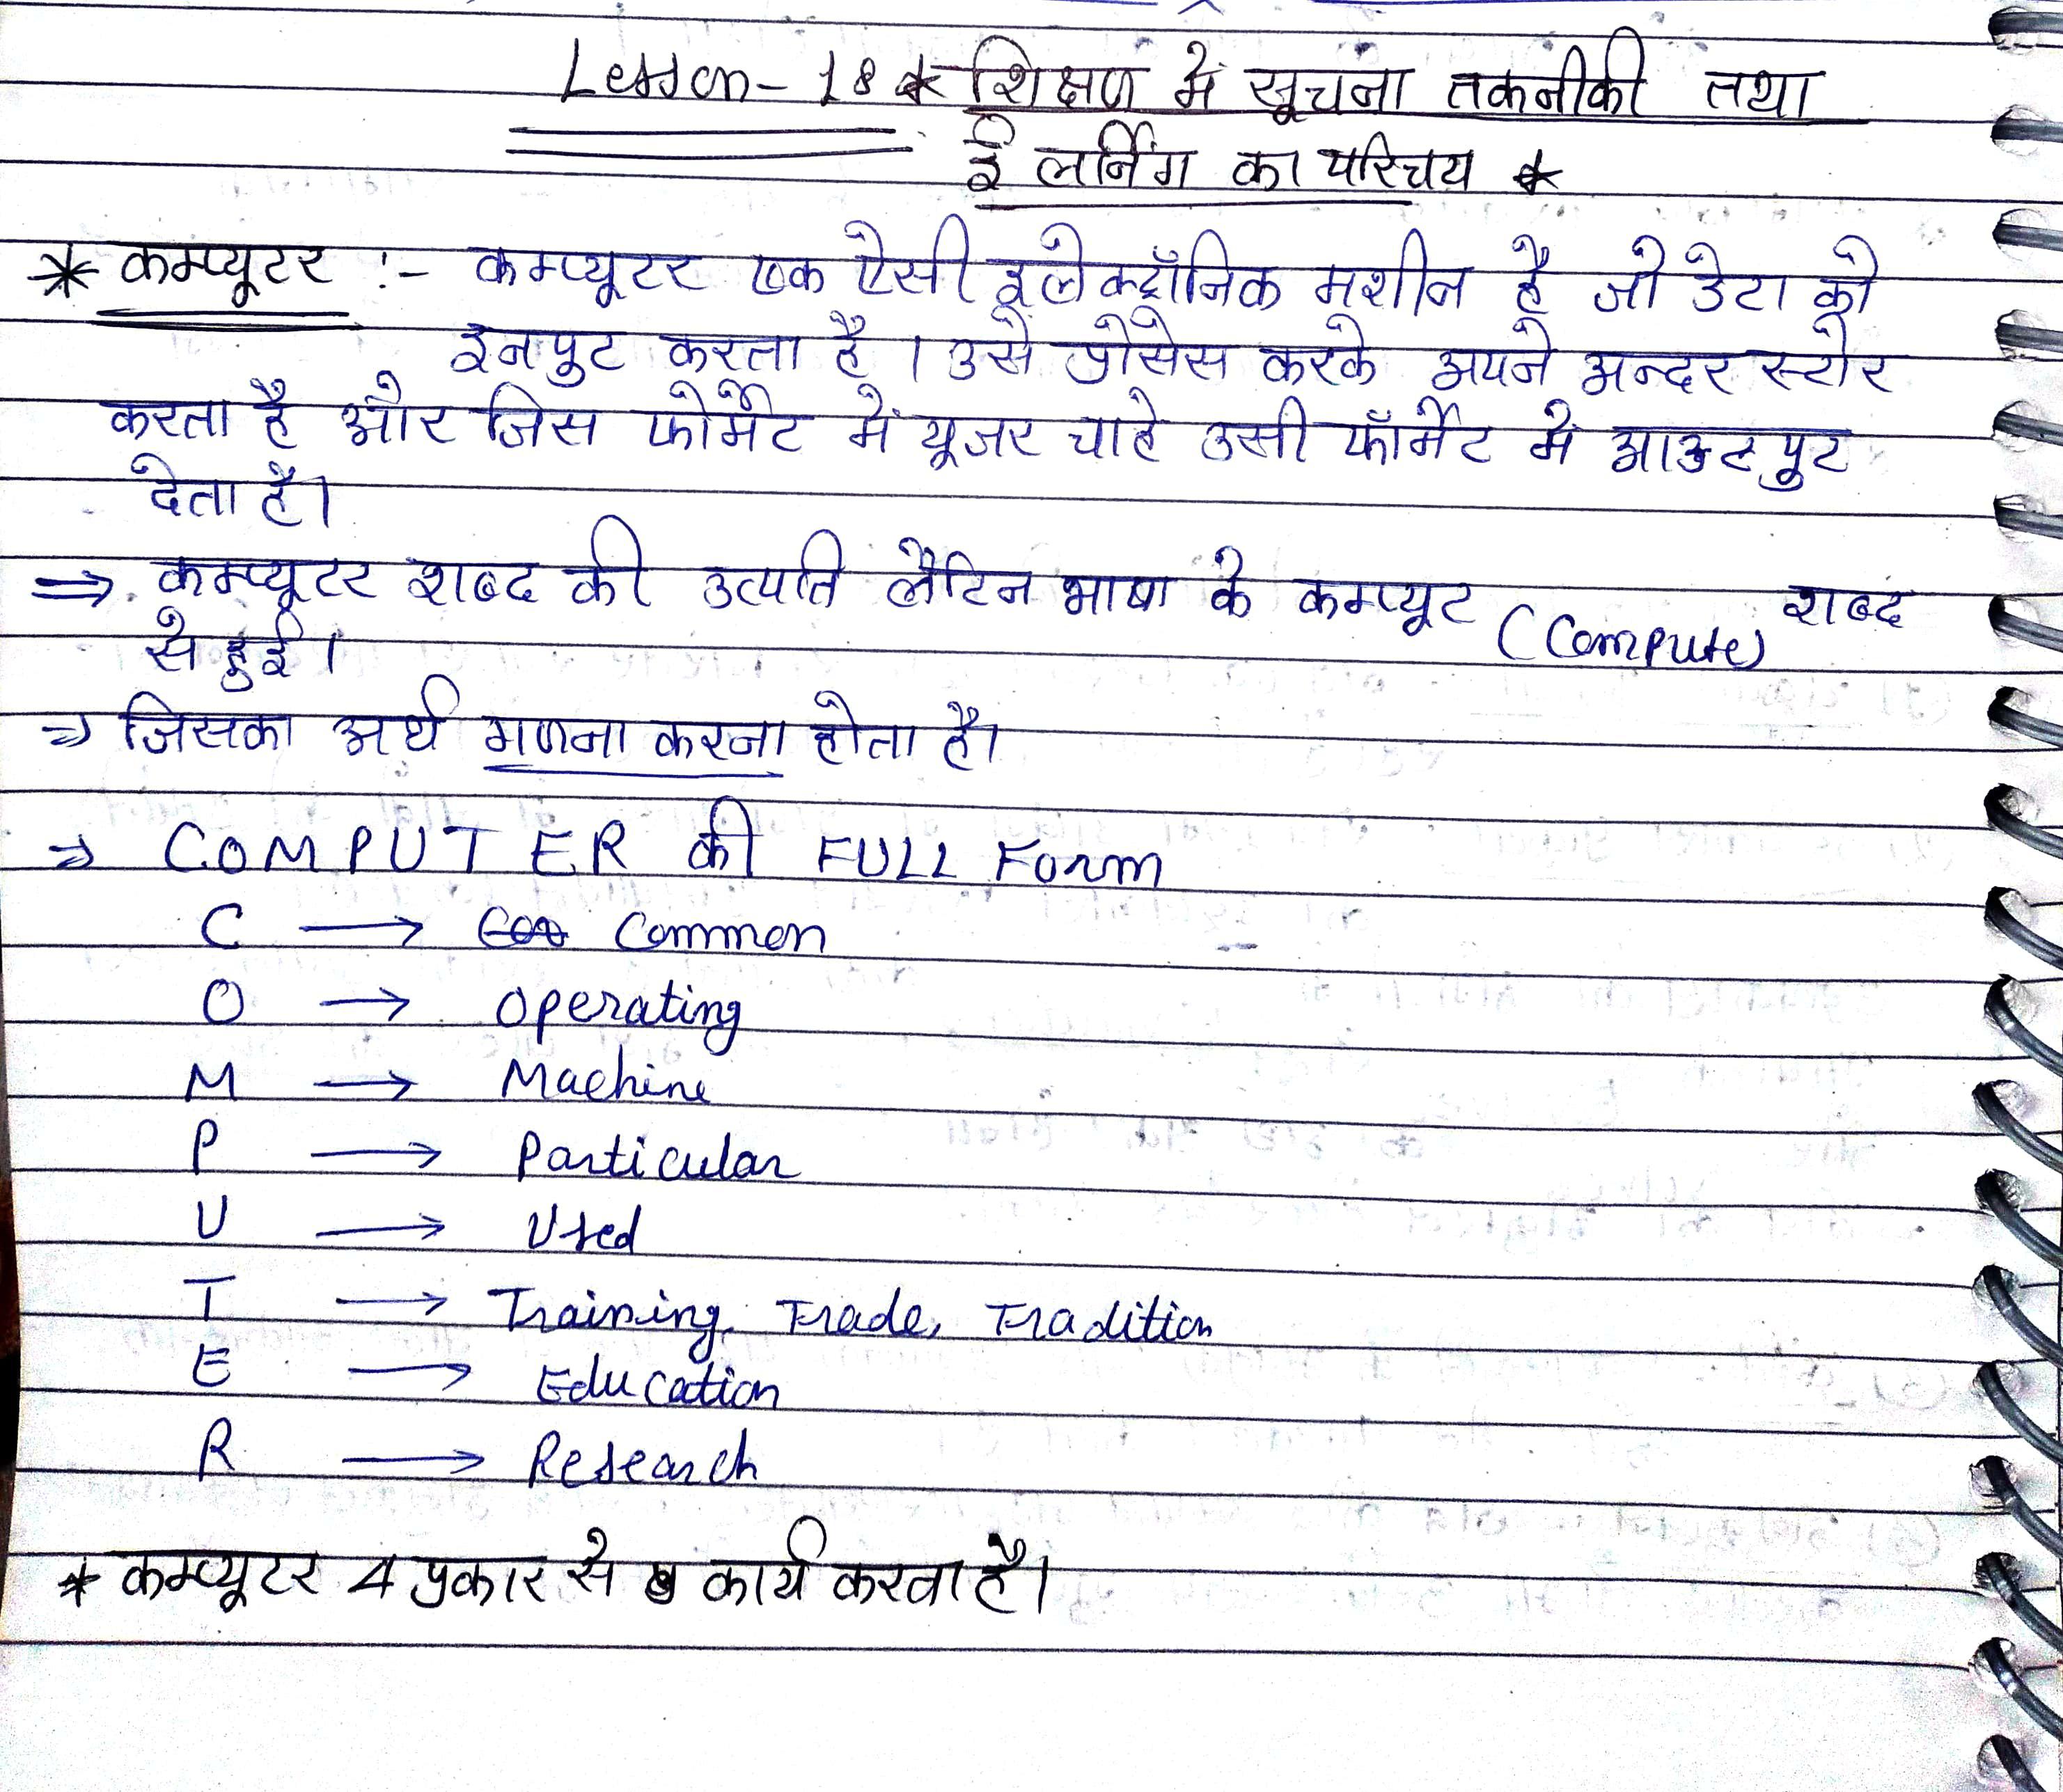 Lesson - 18 * शिक्षण में सूचना तकनीकी तथा
ई लर्निंग का परिचय *
* कम्प्यूटर :- कम्प्यूटर एक ऐसी इलेक्ट्रॉनिक मशीन है जो डेटा को
इनपुट करता है । उसे प्रोसेस करके अपने अन्दर स्टोर
करता है और जिस फोर्मेट में यूजर चाहे उसी फॉर्मेट में आउटपुट
देता है।
⇒ कम्प्यूटर शब्द की उत्पति लैटिन भाषा के कम्प्यूट (Compute) शब्द
से हुई ।
⇒ जिसका अर्थ गणना करना होता है।
⇒ COMPUTER की FULL Form
C → Common
O → Operating
M → Machine
P → Particular
U → Used
T → Training, Trade, Tradition
E → Education
R → Research
* कम्प्यूटर 4 प्रकार से कार्य करता है।